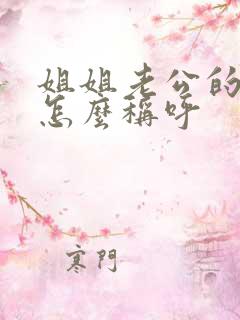 姐姐老公的
怎麼稱呼
寒門